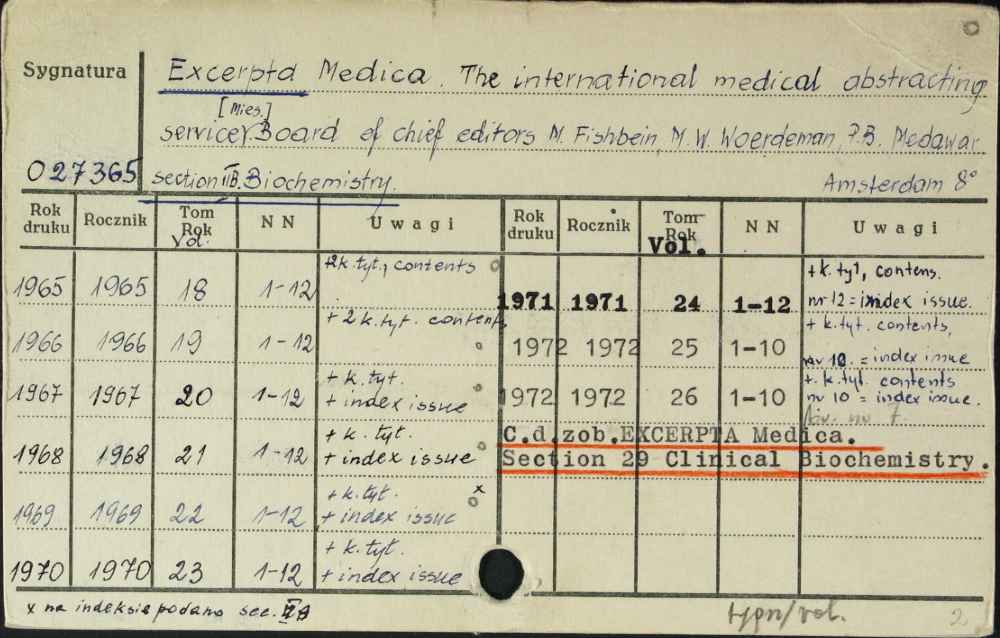 Sygnatura
Excerpta Medica. The international medical abstracting
[Mies.]
service, Board of chief editors M. Fishbein, M. W. Woerdeman, P.B. Medawar.
027365
section II B. Biochemistry.
Amsterdam 8°
Rok druku Rocznik Tom Rok Vol. N N Uwagi Rok druku Rocznik Tom Rok Vol. N N Uwagi
1965 1965 18 1-12 +2k.tyt., contents
1966 1966 19 1-12 + 2 k.tyt. contents
1967 1967 20 1-12 + k. tyt. + index issue
1968 1968 21 1-12 + k. tyt. + index issue
1969 1969 22 1-12 + k. tyt. + index issue x
1970 1970 23 1-12 + k. tyt. + index issue
1971 1971 24 1-12 + k. tyt, contens. nr 12 = index issue.
1972 1972 25 1-10 + k. tyt. contents, nr 10. = index issue
1972 1972 26 1-10 + k. tyt. contents nr 10 = index issue.
C.d.zob.EXCERPTA Medica.
Section 29 Clinical Biochemistry.
x na indeksie podano sec.
2